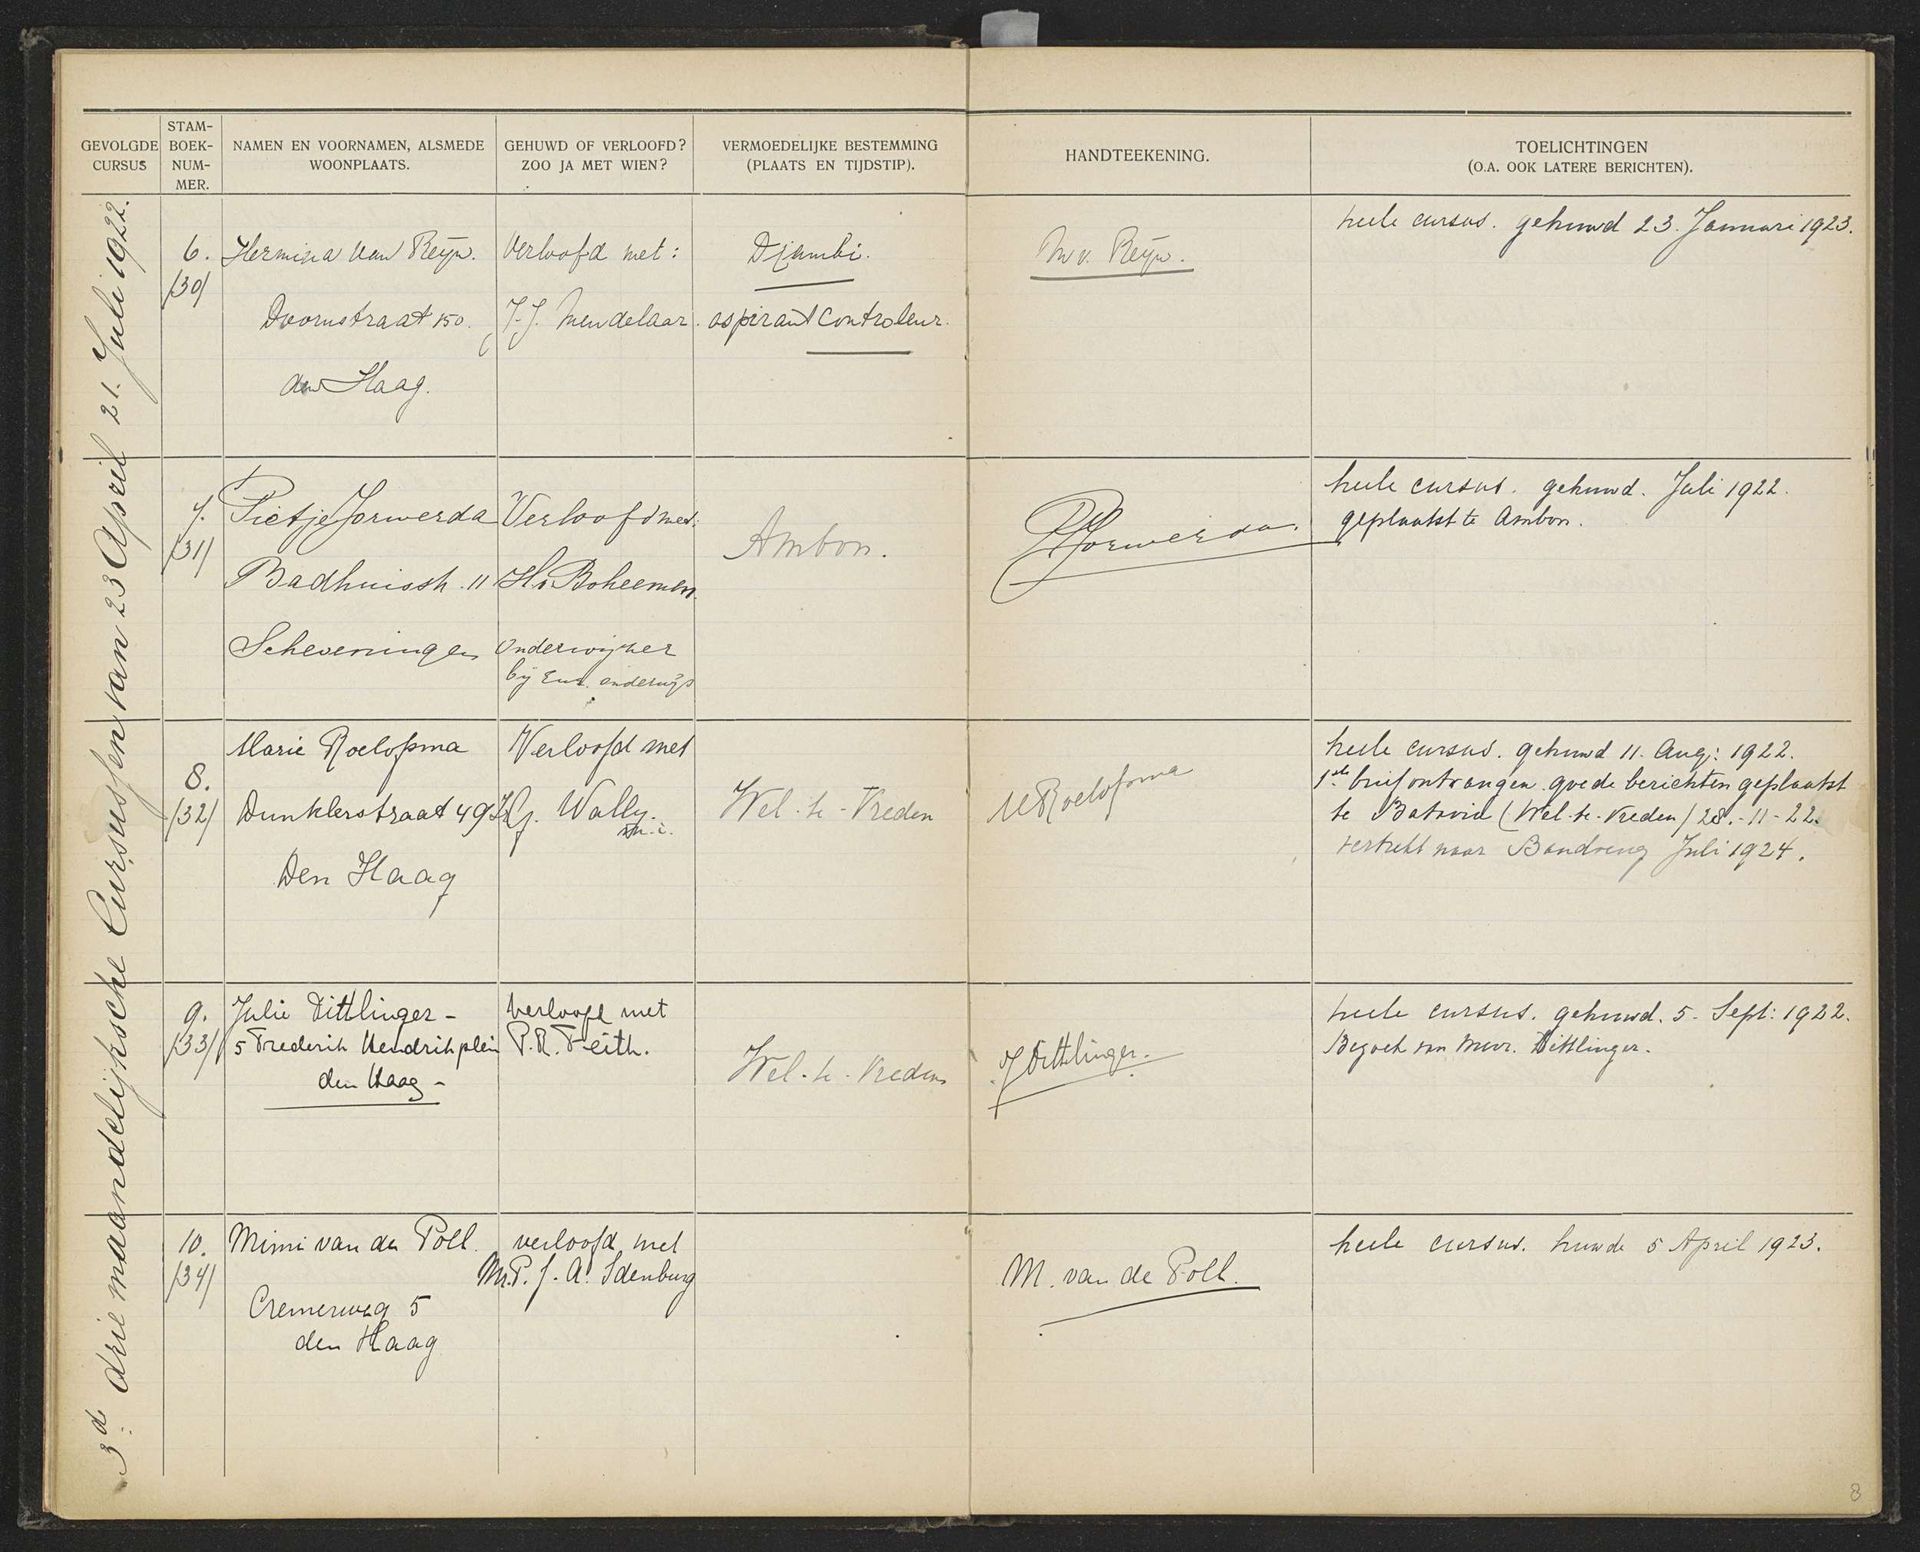 GEVOLGDE CURSUS
STAM-BOEK-NUM-MER.
NAMEN EN VOORNAMEN, ALSMEDE WOONPLAATS.
GEHUWD OF VERLOOFD? ZOO JA MET WIEN?
VERMOEDELIJKE BESTEMMING (PLAATS EN TIJDSTIP).
HANDTEEKENING.
TOELICHTINGEN (O.A. OOK LATERE BERICHTEN).
3d. driemaandelijksche Cursussen van 23 April 21. Juli 1922.
6.
/30/
Hermina van Reijn.
Doornstraat 150.
den Haag.
Verloofd met:
J.J. Mendelaar.
Djambi.
aspirant controleur.
M v. Reijn.
heele cursus. gehuwd 23. Januari 1923.
7.
/31/
Pietje Jorwerda
Badhuisstr. 11
Scheveningen
Verloofd met:
H. v. Boheemen.
Onderwijzer
bij Eur. onderwijs
Ambon.
P Jorwerda.
heele cursus. gehuwd. Juli 1922.
geplaatst te Ambon.
8.
/32/
Marie Roelofsma
Dunklerstraat 49
Den Haag
Verloofd met
G. Wally.
m.i.
Wel-te-Vreden
M Roelofsma
heele cursus. gehuwd 11. Aug: 1922.
1ste brief ontvangen. goede berichten geplaatst
te Batavia (Wel-te-Vreden) 28.-11-22.
vertrekt naar Bandoeng Juli 1924.
9.
/33/
Julie Dittlinger -
5 Frederik Hendrikplein
den Haag -
verloofd met
P.R. Feith.
Wel-te-Vreden
J Dittlinger.
heele cursus. gehuwd. 5. Sept: 1922.
Bezoek van Mevr. Dittlinger.
10.
/34/
Mimi van de Poll.
Cremerweg 5
den Haag
verloofd met
Mr. P. J. A. Idenburg
M. van de Poll.
heele cursus. huwde 5 April 1923.
8